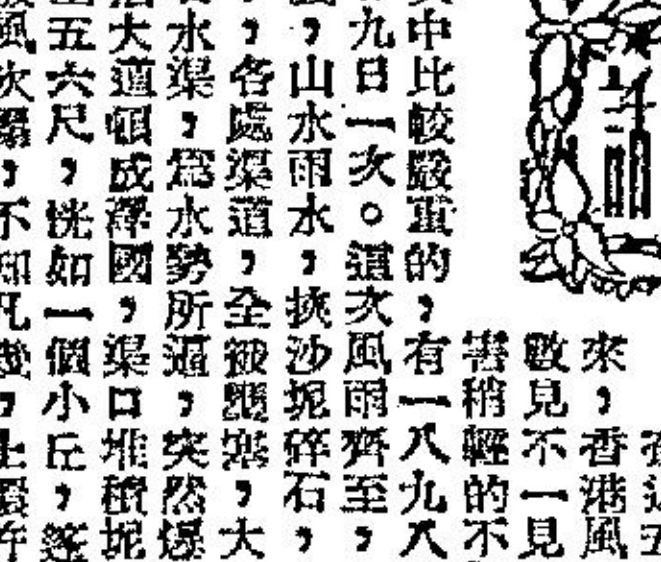 來，香港風
數見不一見
害稍輕的不
中比較嚴重的，有一八九八
九日一次。這次風雨齊至，
，山水雨水，挾沙坭碎石，
，各處渠道，全被壅塞，大
水渠，為水勢所逼，突然爆
大道頓成澤國，渠口堆積坭
五六尺，恍如一個小丘，遂
風次，不知凡幾，